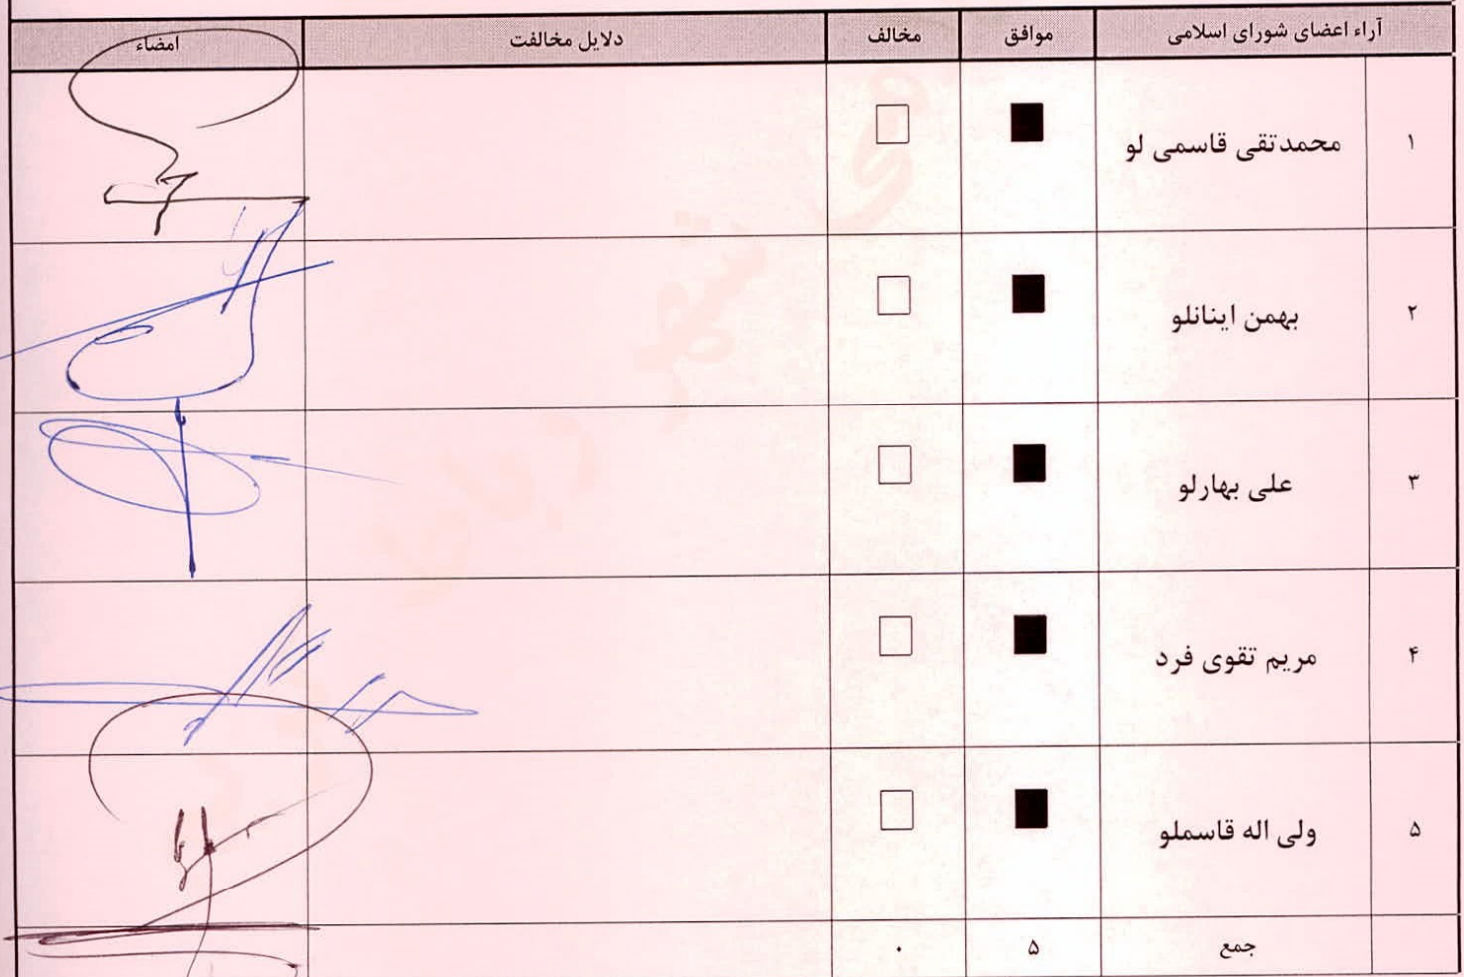 آراء اعضای شورای اسلامی موافق مخالف دلایل مخالفت امضاء
۱ محمدتقی قاسمی لو ■ □
۲ بهمن اینانلو ■ □
۳ علی بهارلو ■ □
۴ مریم تقوی فرد ■ □
۵ ولی اله قاسملو ■ □
جمع ۵ ۰